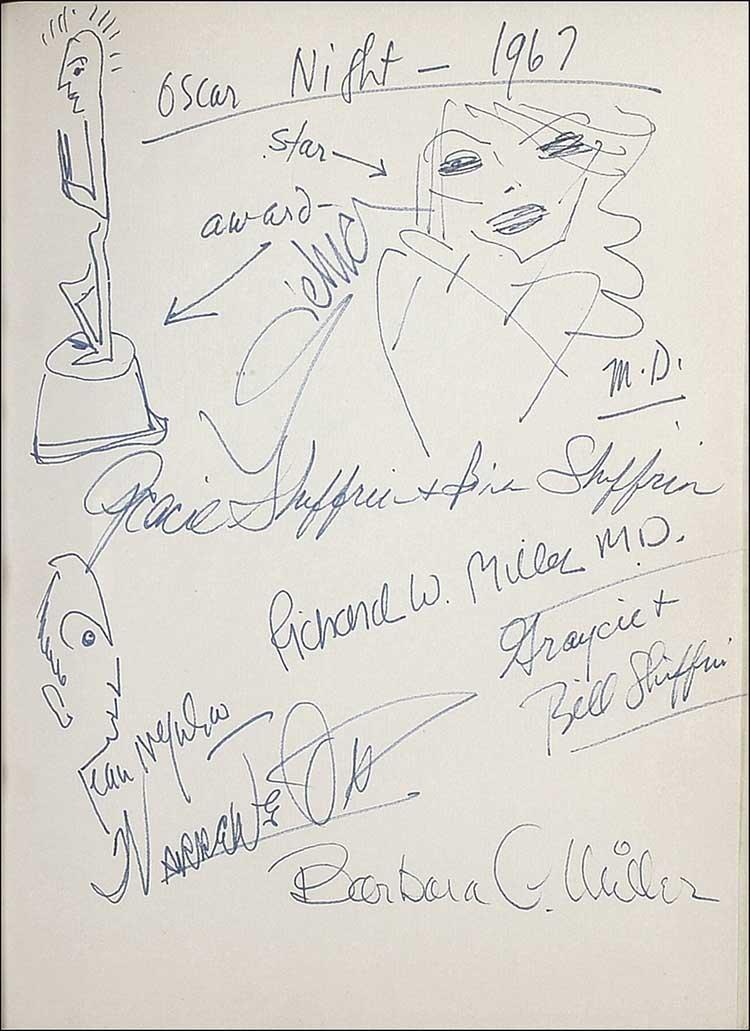 Oscar Night - 1967
star
award-
M.D.
Gracie Shiffrin + Bill Shiffrin
Richard W. Miller M.D.
Graycie +
Bill Shiffrin
Jean Negulesco
Barbara C. Miller